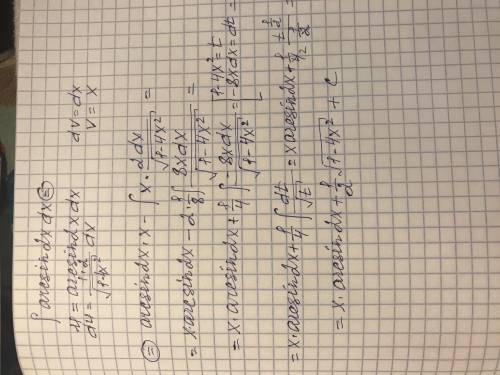 ∫ arcsin2x dx ⊜
u = arcsin2x dx   dv = dx
du = 1·2/√(1-4x²) dx   v = x
⊜ arcsin2x · x - ∫ x · 2dx/√(1-4x²) =
= x · arcsin2x - 2 · 1/8 ∫ 8xdx/√(1-4x²) =
= x · arcsin2x + 1/4 ∫ -8xdx/√(1-4x²) = [1-4x² = t
-8xdx = dt] =
= x · arcsin2x + 1/4 ∫ dt/√t = x arcsin2x + 1/4 t^(1/2)/(1/2) =
= x · arcsin2x + 1/2 √(1-4x²) + C